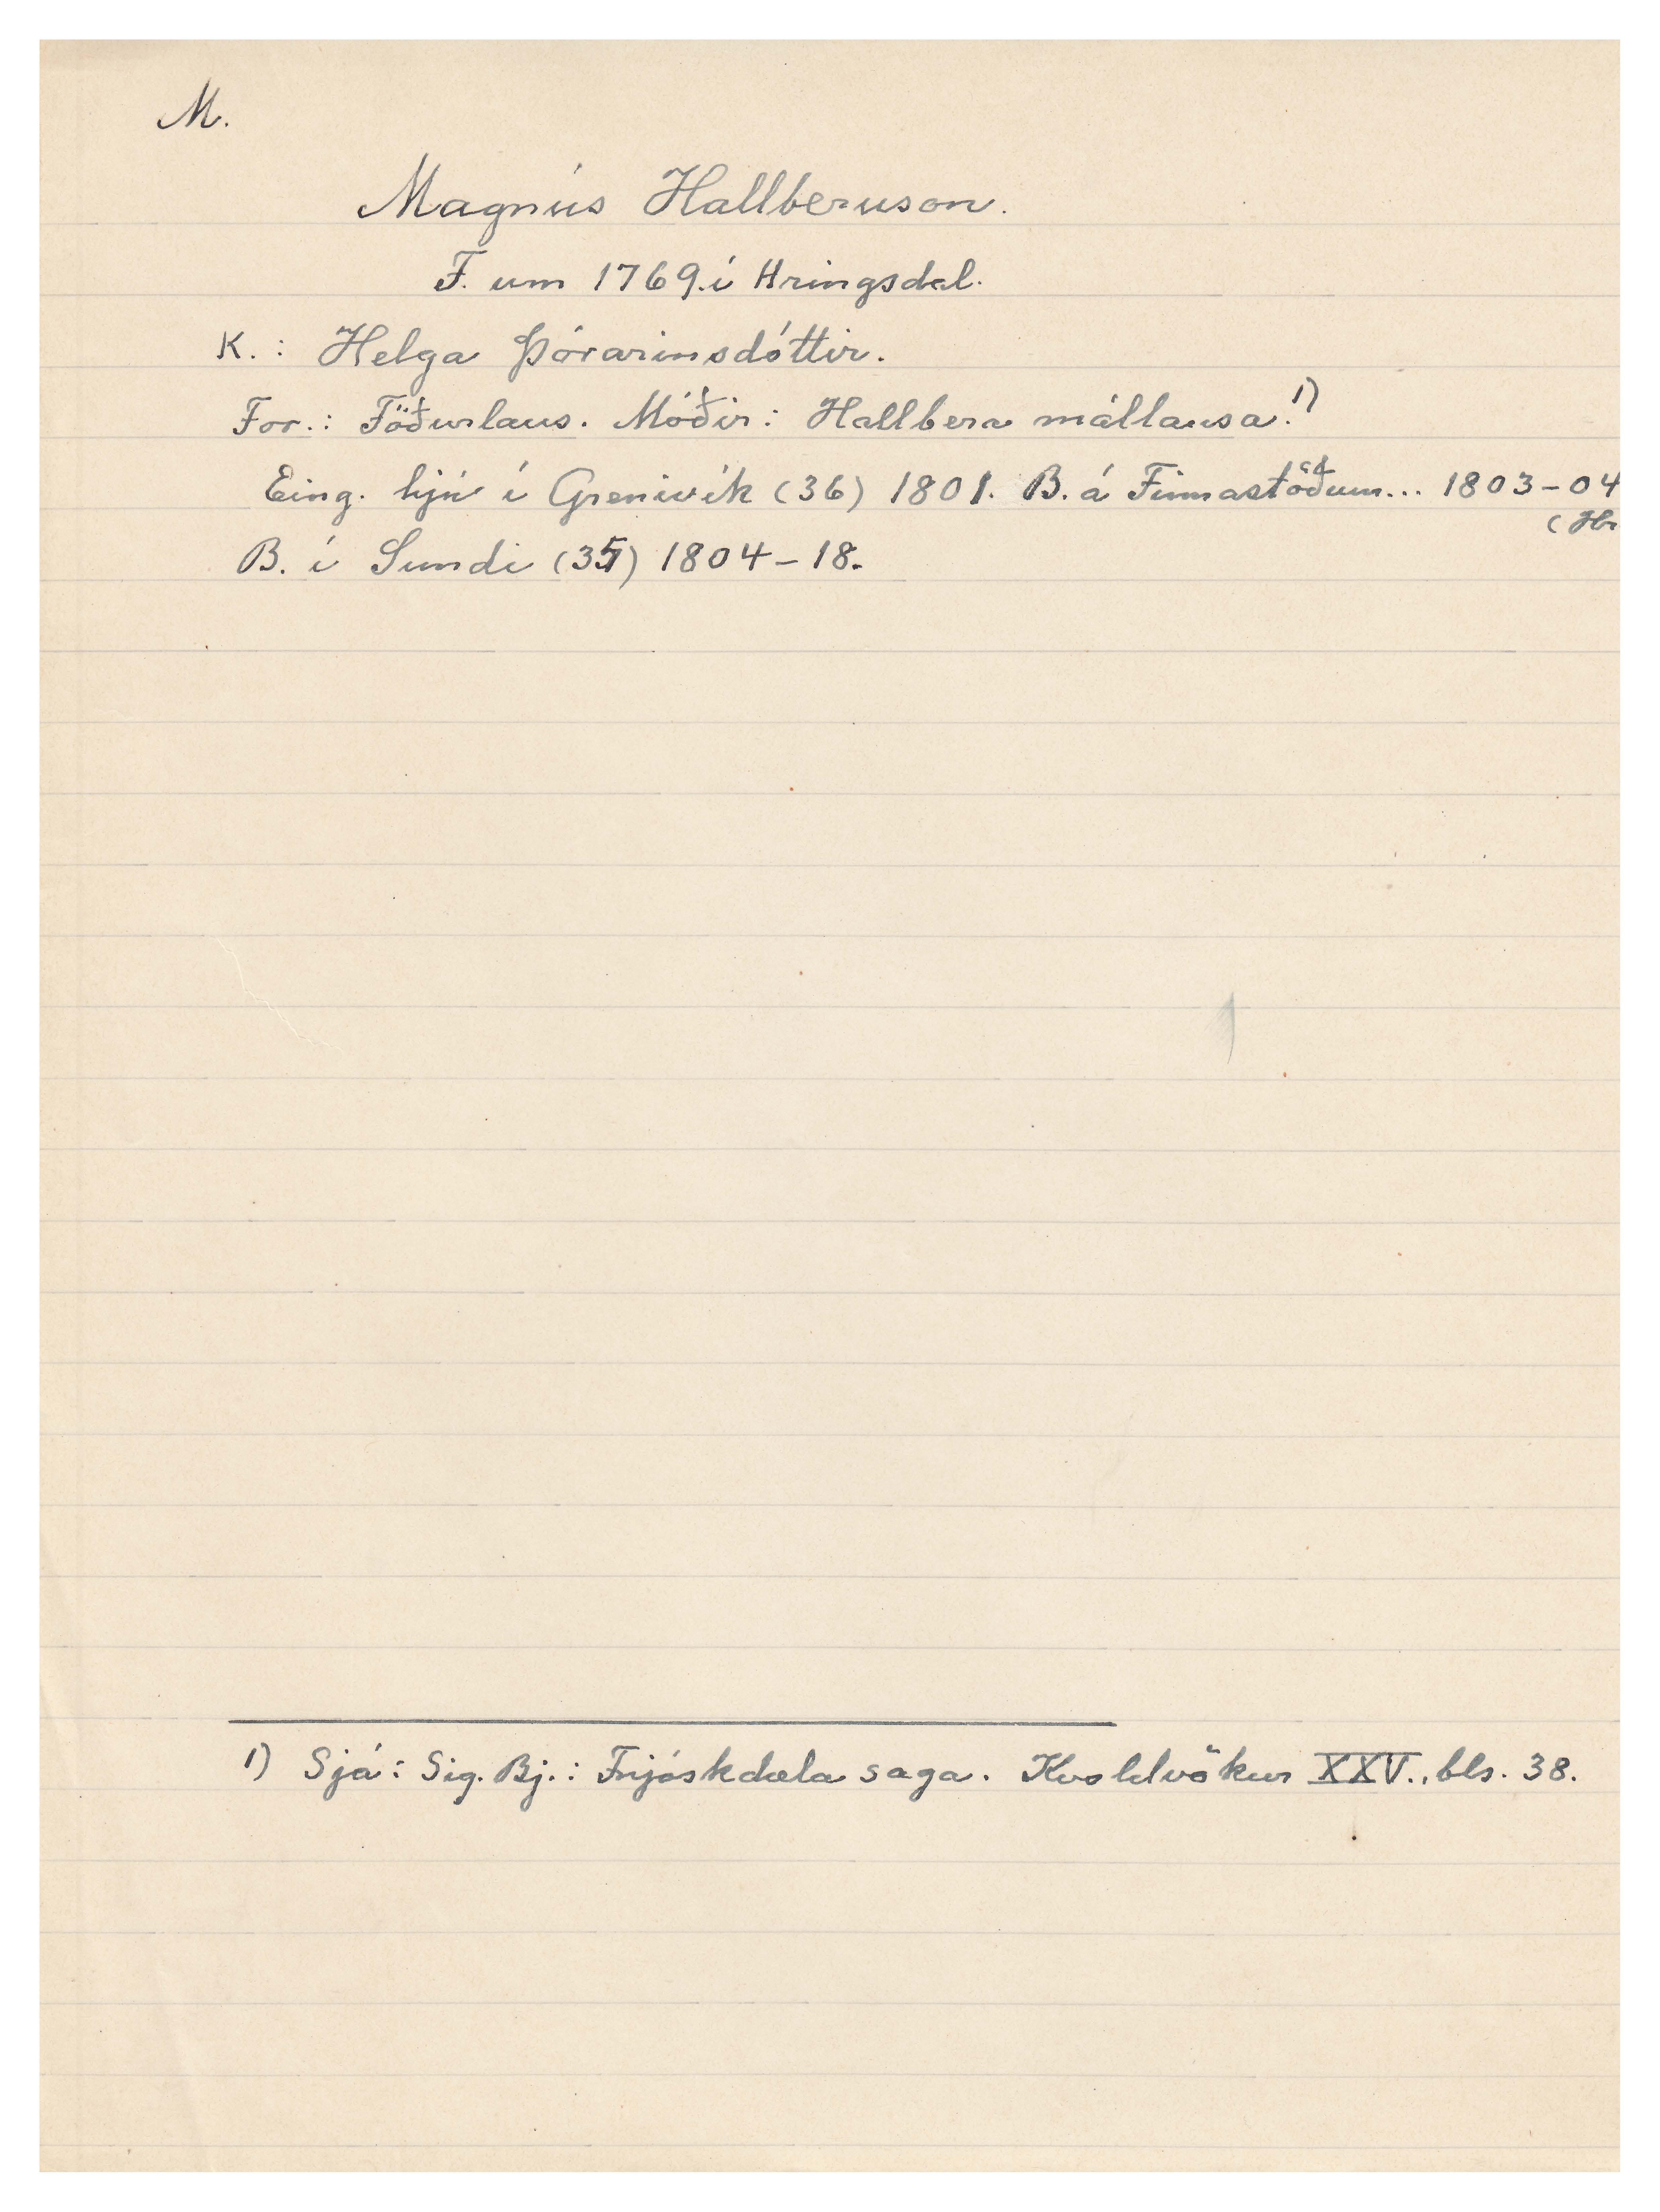 M.
Magnús Hallberuson.
F. um 1769. í Hringsdal.
K.: Helga Þórarinsdóttir.
For.: Föðurlaus. Móðir: Hallbera mállausa.¹⁾
Eing. hjú í Grenivík (36) 1801. B. á Finnastöðum... 1803-04
(Hr
B. í Sundi (35) 1804-18.
1) Sjá: Sig. Bj.: Fnjóskdæla saga. Kvöldvökur XXV., bls. 38.